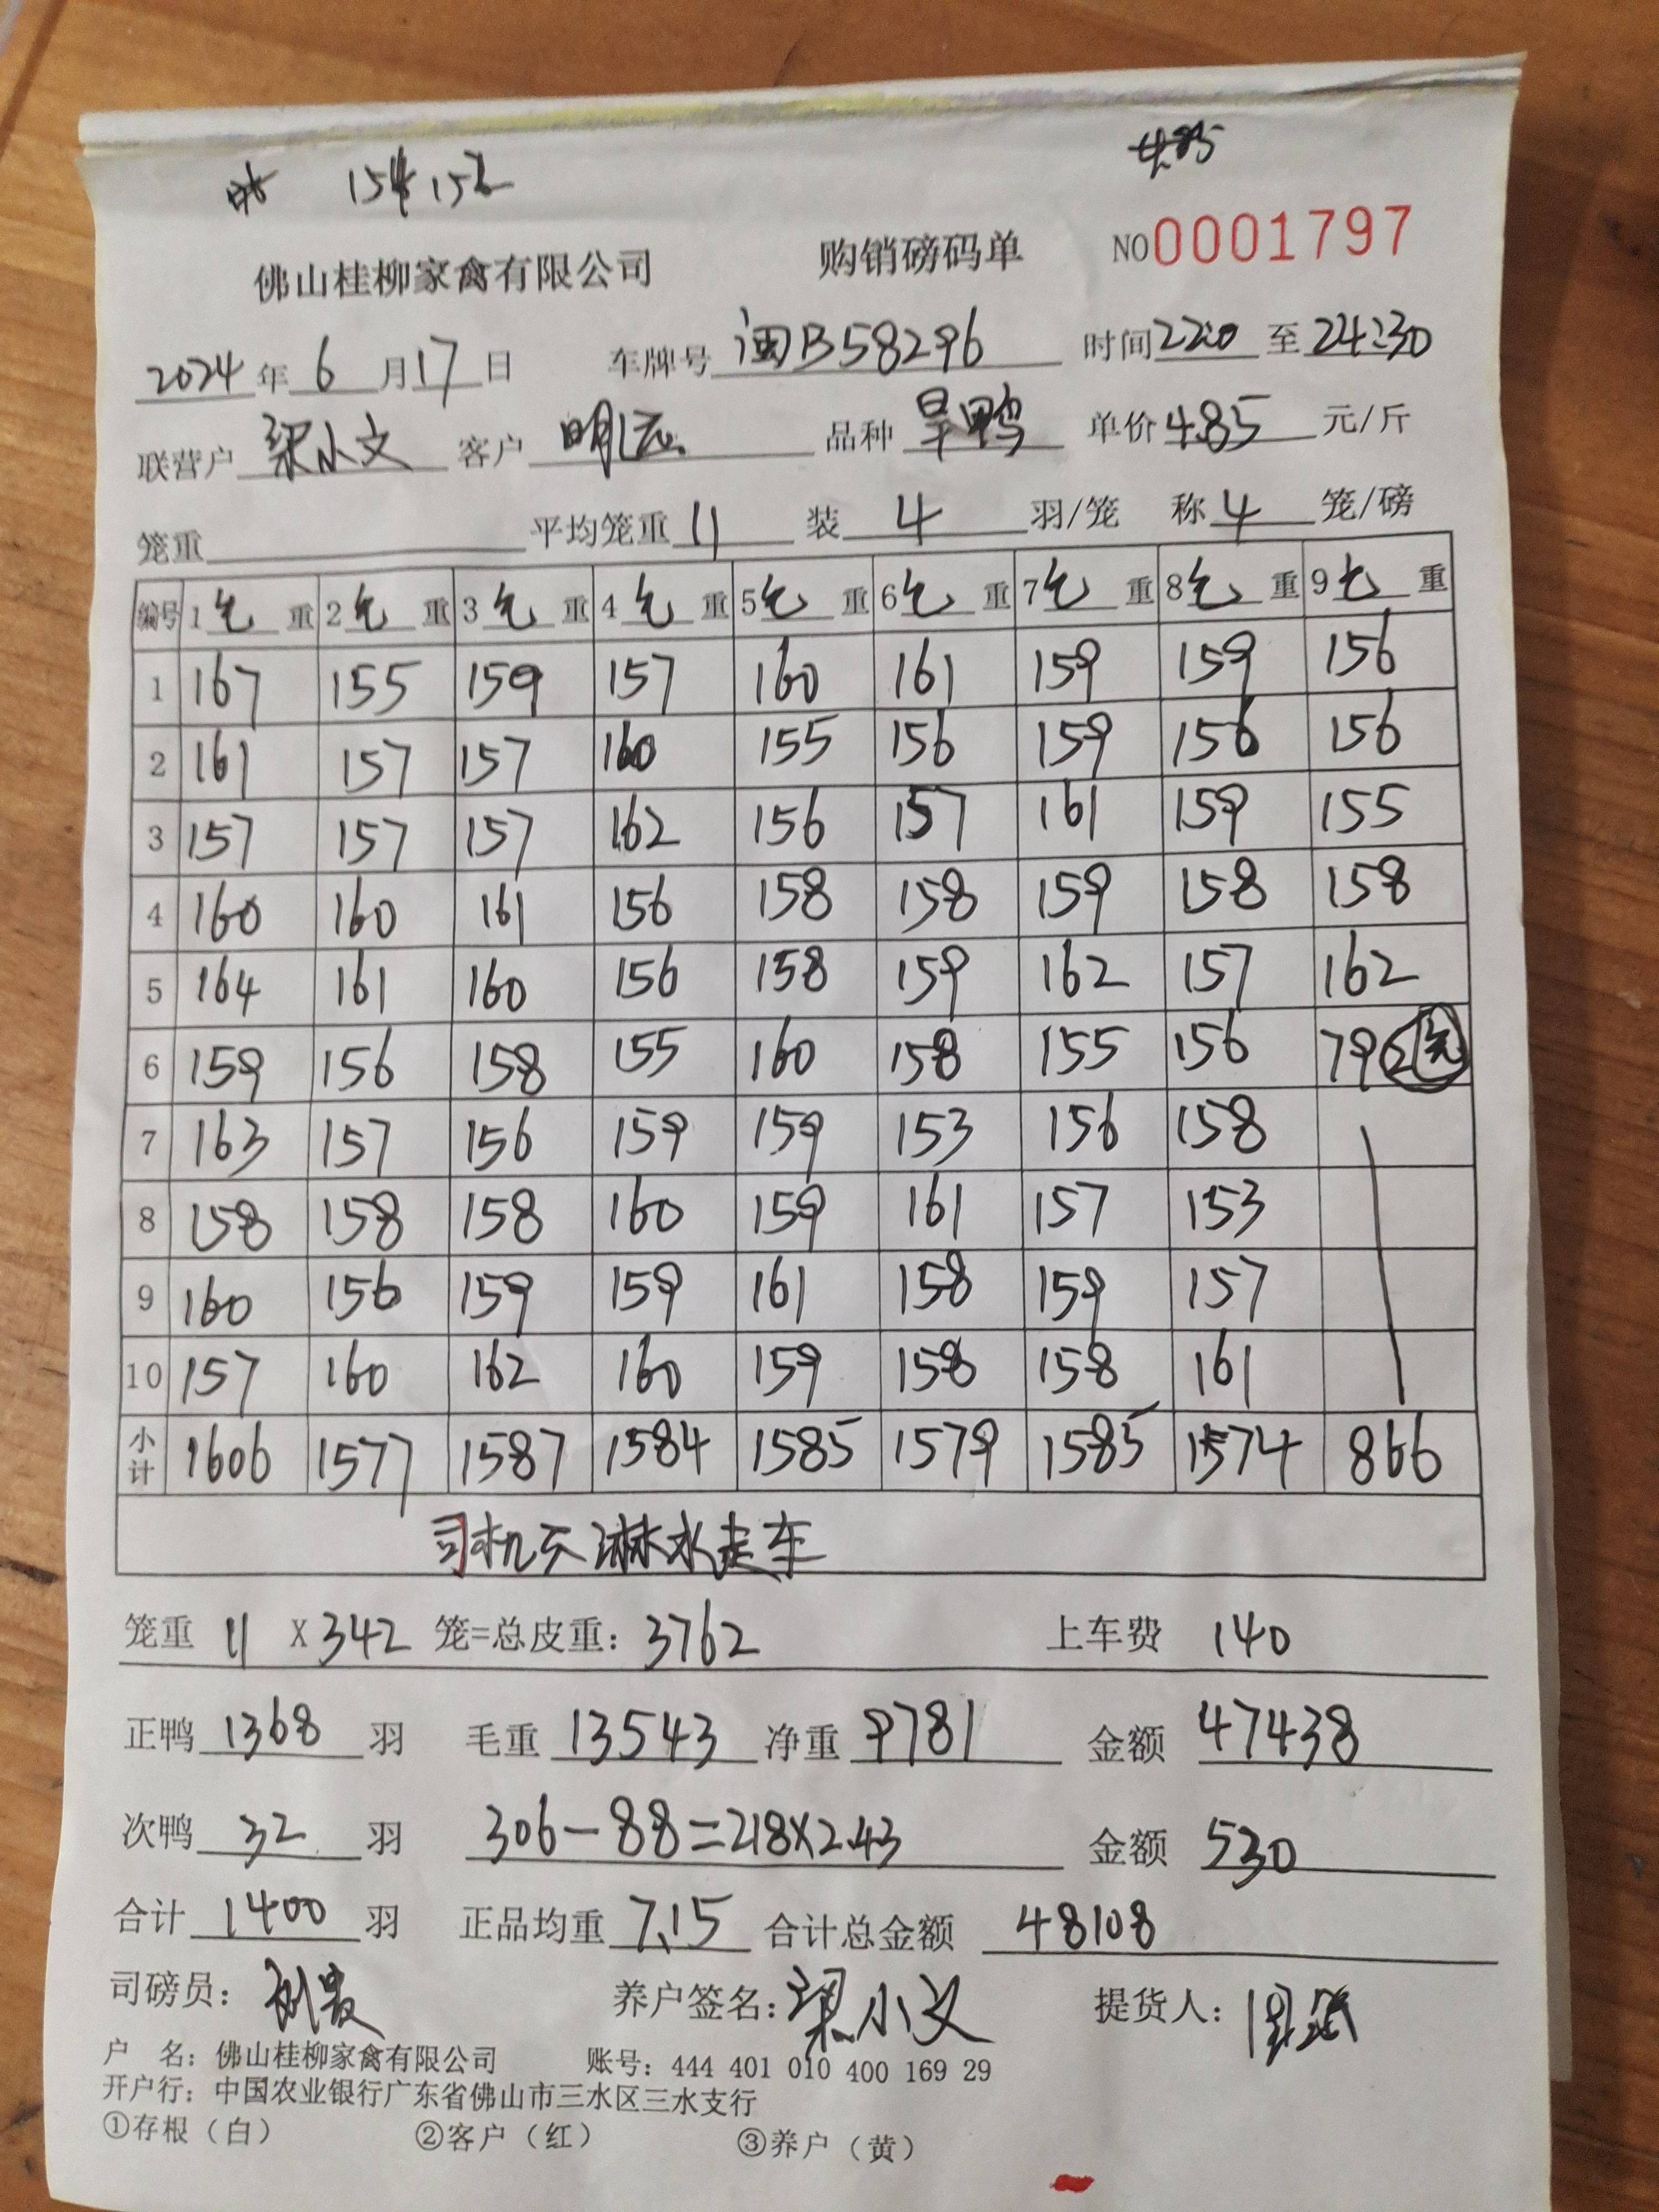 佛山桂柳家禽有限公司 购销磅码单 NO0001797
2024年6月17日 车牌号 闽B58296 时间 22:0 至 24:30
联营户 梁小文 客户 明 品种 旱鸭 单价 4.85 元/斤
笼重 平均笼重 11 装 4 羽/笼 称 4 笼/磅
编号 1毛重 2毛重 3毛重 4毛重 5毛重 6毛重 7毛重 8毛重 9毛重
1 167 155 159 157 160 161 159 159 156
2 161 157 157 160 155 156 159 156 156
3 157 157 157 162 156 157 161 159 155
4 160 160 161 156 158 158 159 158 158
5 164 161 160 156 158 159 162 157 162
6 159 156 158 155 160 158 155 156 79
7 163 157 156 159 159 153 156 158
8 158 158 158 160 159 161 157 153
9 160 156 159 159 161 158 159 157
10 157 160 162 160 159 158 158 161
小计 1606 1577 1587 1584 1585 1579 1585 1574 866
司机 淋水走车
笼重 11 X 342 笼=总皮重: 3762 上车费 140
正鸭 1368 羽 毛重 13543 净重 9781 金额 47438
次鸭 32 羽 306-88=218×2.43 金额 530
合计 1400 羽 正品均重 7.15 合计总金额 48108
司磅员: 养户签名: 梁小文 提货人:
户 名: 佛山桂柳家禽有限公司 账号: 444 401 010 400 169 29
开户行: 中国农业银行广东省佛山市三水区三水支行
①存根(白) ②客户(红) ③养户(黄)